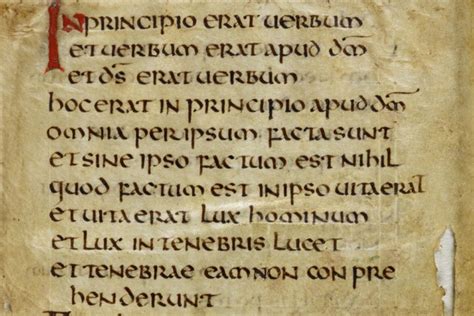 IN PRINCIPIO ERAT UERBUM
ET UERBUM ERAT APUD DM
ET DS ERAT UERBUM
HOC ERAT IN PRINCIPIO APUD DM
OMNIA PER IPSUM FACTA SUNT
ET SINE IPSO FACTUM EST NIHIL
QUOD FACTUM EST IN IPSO UITA ERAT
ET UITA ERAT LUX HOMINUM
ET LUX IN TENEBRIS LUCET
ET TENEBRAE EAM NON CON PRE
HENDERUNT